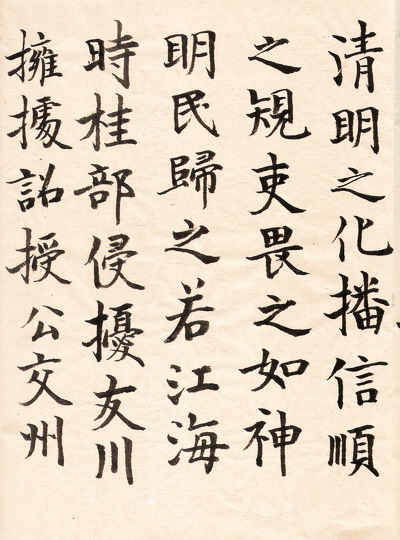 清明之化播信順
之規吏畏之如神
明民歸之若江海
時桂部侵擾友川
擁據詔授公交州